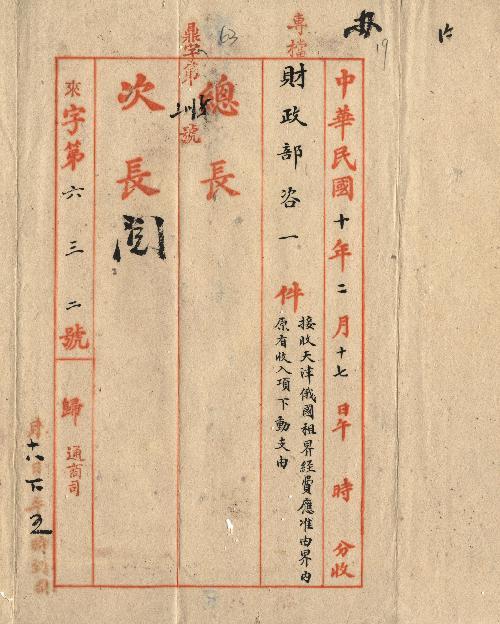 中華民國十年二月十七日午 時 分收
專檔
財政部咨一件
接收天津俄國租界經費應准由界內
原有收入項下動支由
63
19
鼎字第
號
總長
次長
閱
來字第六三二號
歸通商司
十八下五